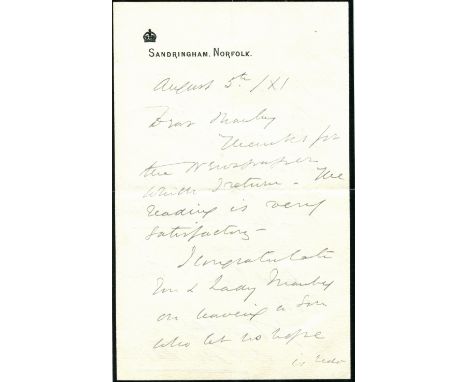 SANDRINGHAM, NORFOLK.
August 5th /XI
Dear Manby
Thanks for
the Newspaper
which I return - The
reading is very
satisfactory -
I congratulate
You & Lady Manby
on having a Son
who let us hope
is